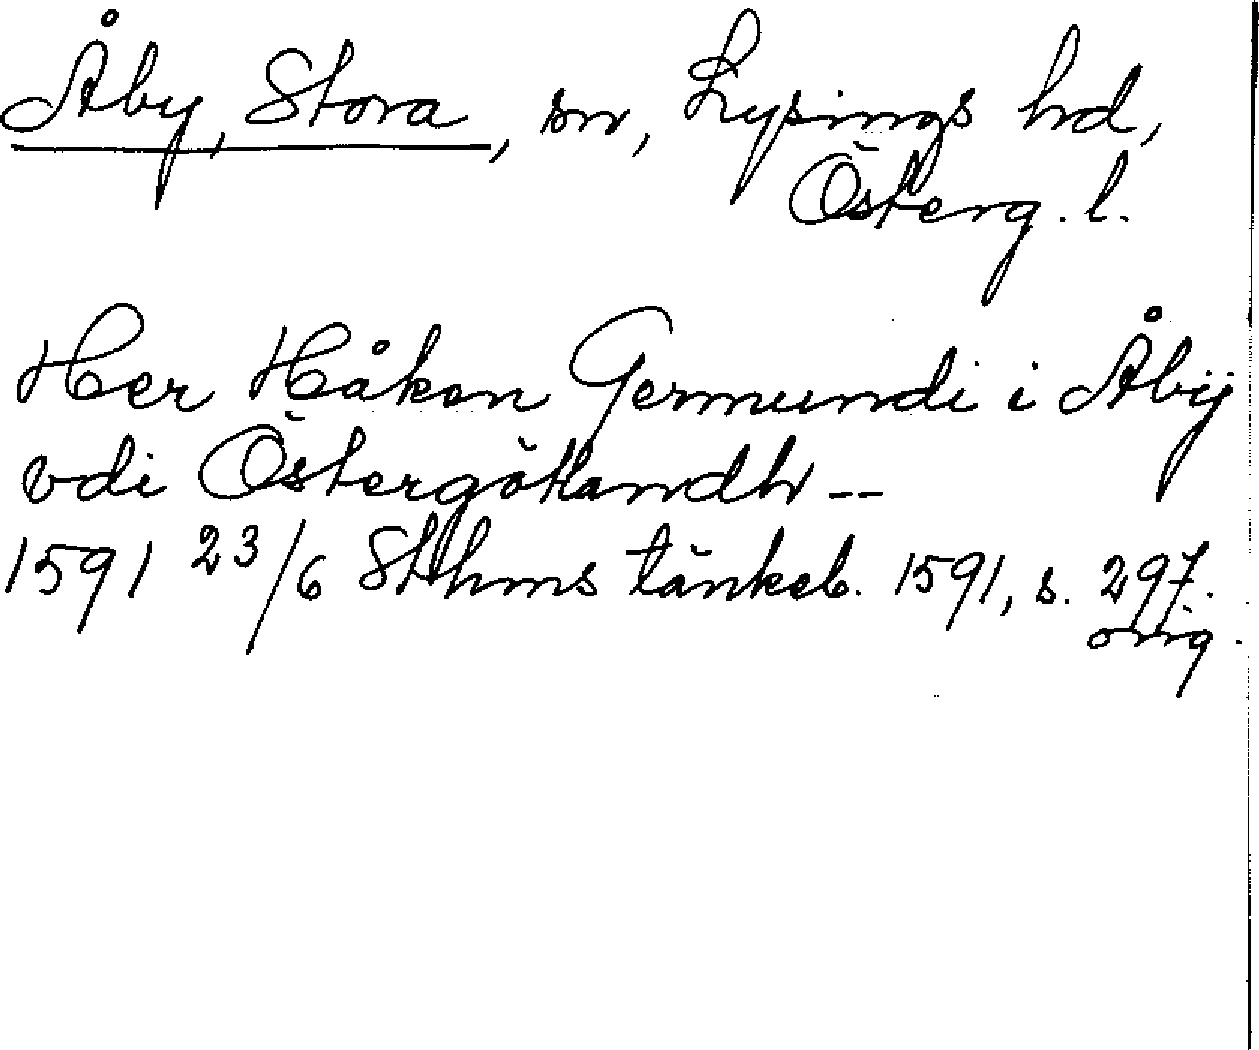 Åby, Stora, sn, Lysings hd,
Österg. l.
Her Håken Germundi i Åbÿ
vdi Östergötlandh --
1591 23/6 Sthms tänkeb. 1591, s. 297.
orig.